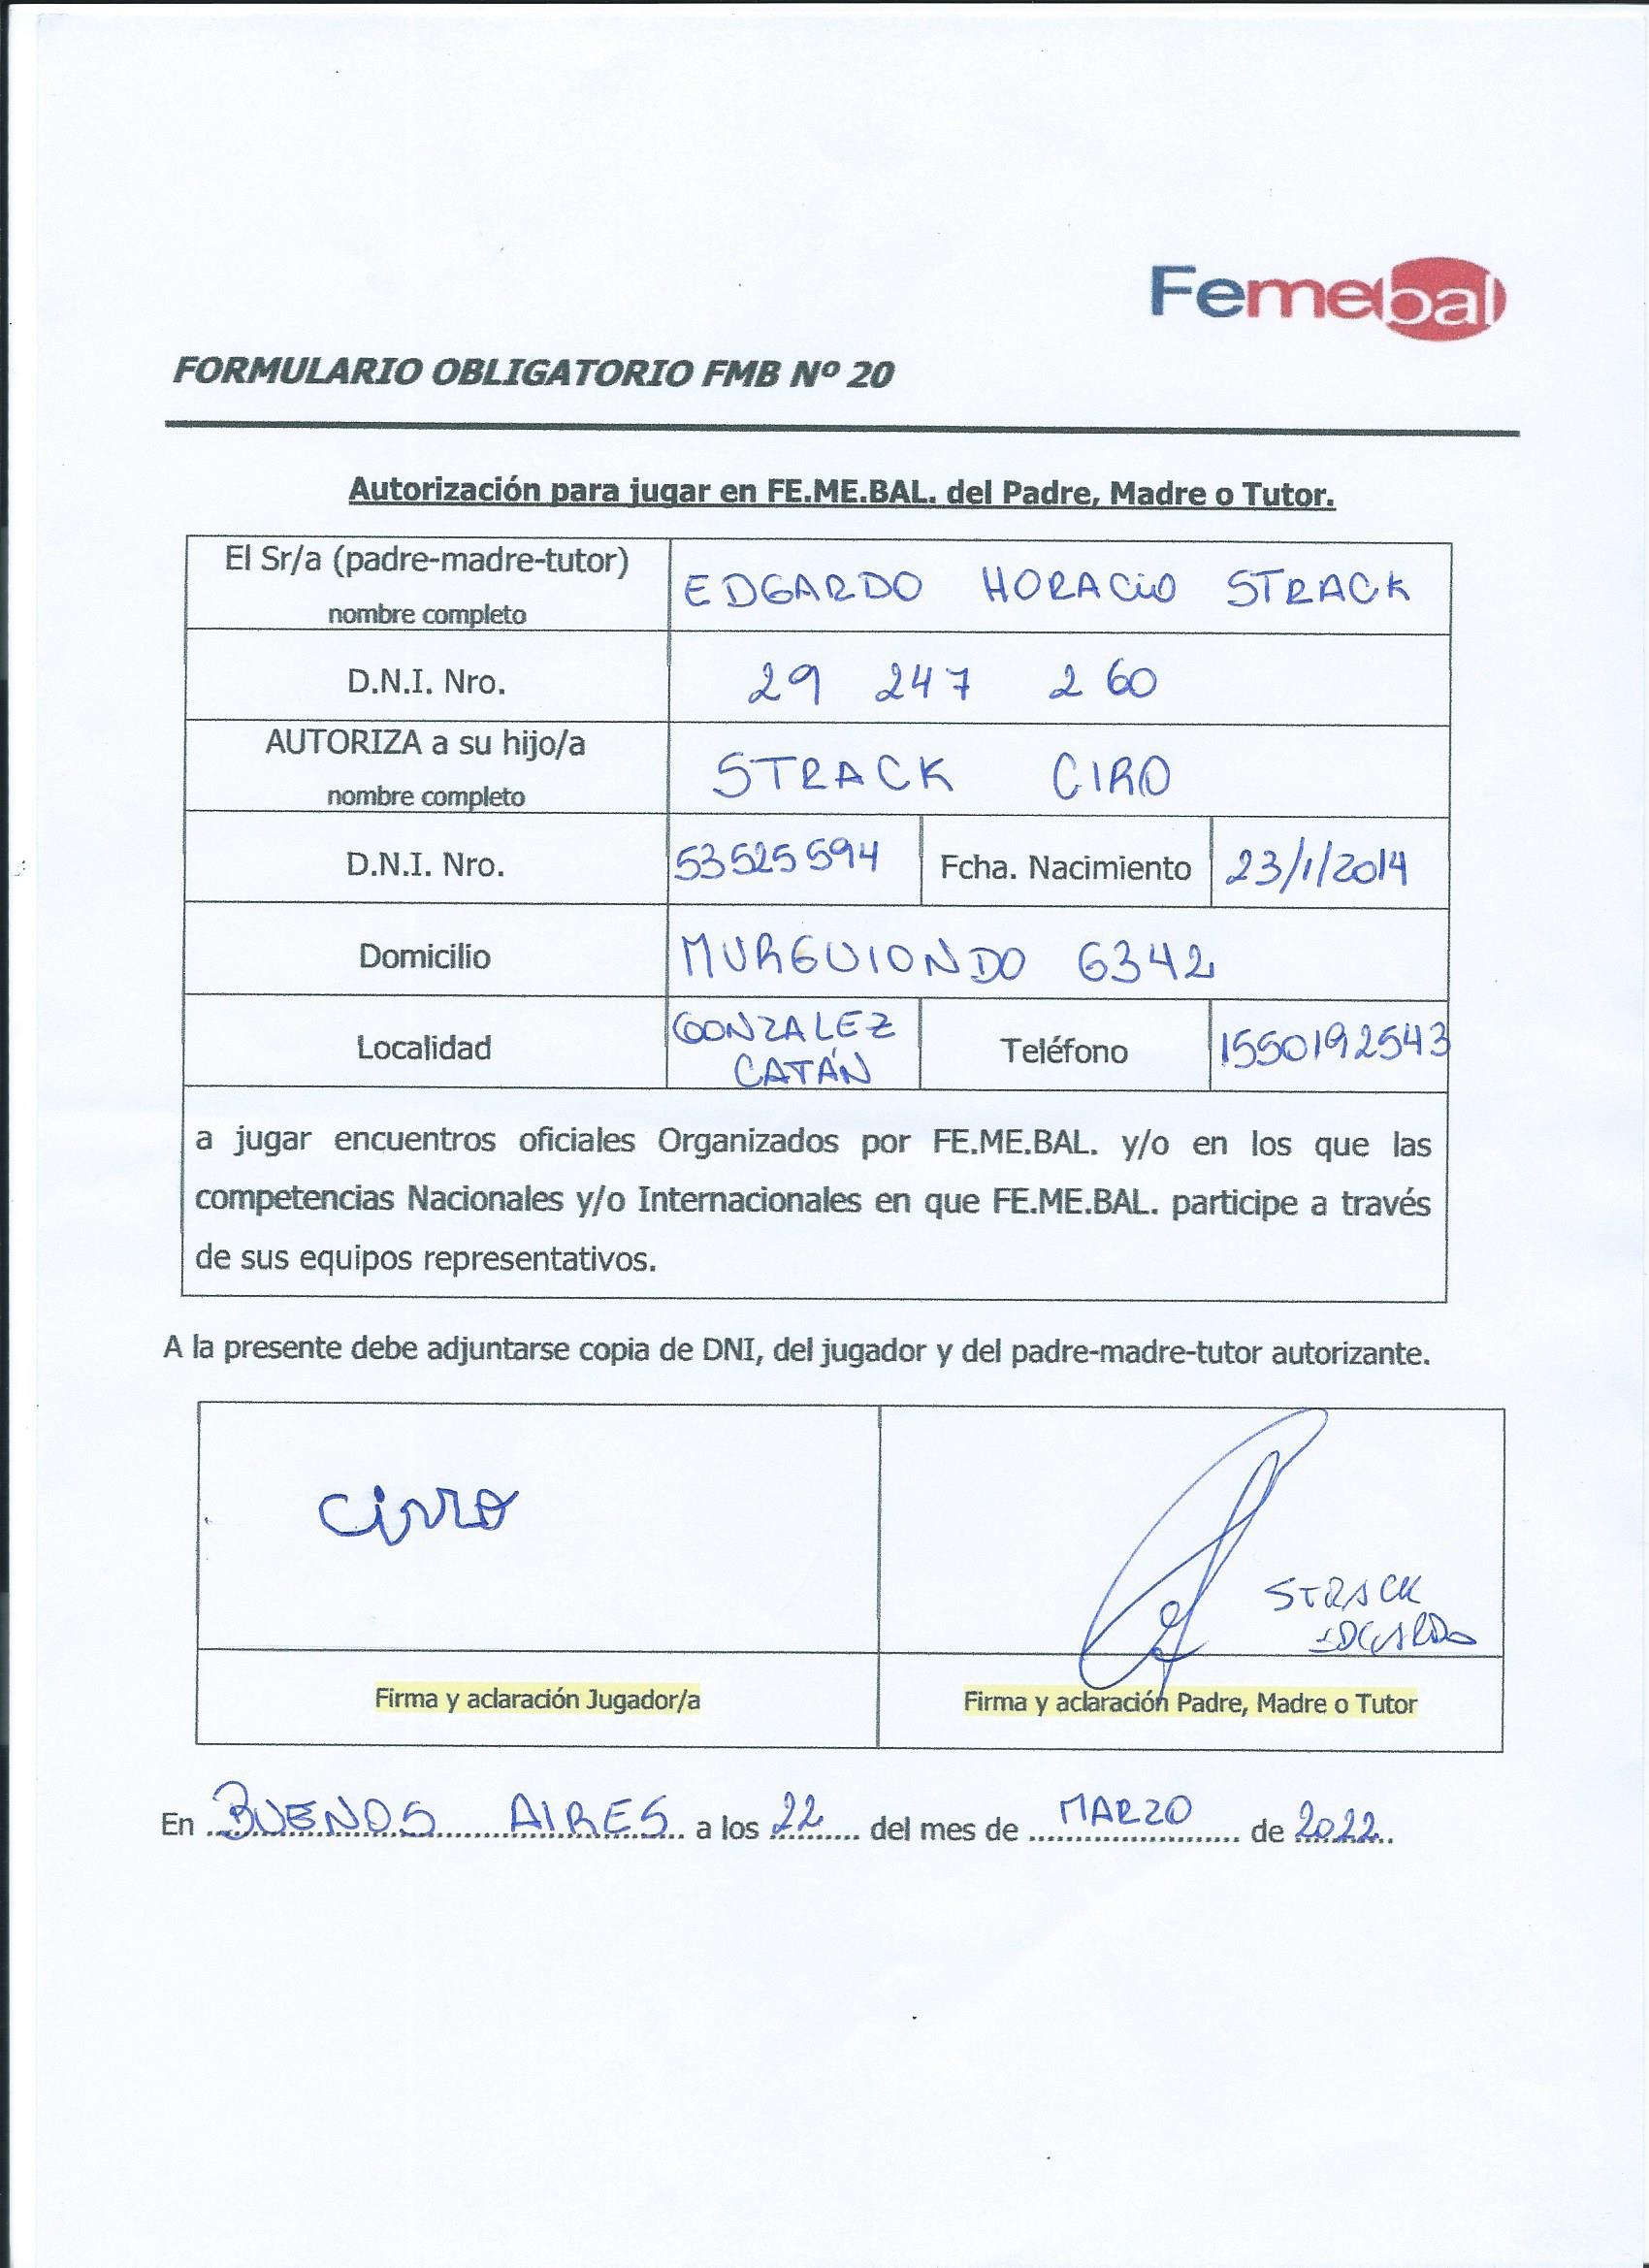 Femebal
FORMULARIO OBLIGATORIO FMB Nº 20
Autorización para jugar en FE.ME.BAL. del Padre, Madre o Tutor.
El Sr/a (padre-madre-tutor)
nombre completo
EDGARDO HORACIO STRACK
D.N.I. Nro.
29 247 260
AUTORIZA a su hijo/a
nombre completo
STRACK CIRO
D.N.I. Nro.
53525594
Fcha. Nacimiento
23/1/2014
Domicilio
MURGUIONDO 6342
Localidad
GONZALEZ
CATÁN
Teléfono
1550192543
a jugar encuentros oficiales Organizados por FE.ME.BAL. y/o en los que las
competencias Nacionales y/o Internacionales en que FE.ME.BAL. participe a través
de sus equipos representativos.
A la presente debe adjuntarse copia de DNI, del jugador y del padre-madre-tutor autorizante.
cirro
STRACK
EDGARDO
Firma y aclaración Jugador/a
Firma y aclaración Padre, Madre o Tutor
En BUENOS AIRES a los 22 del mes de MARZO de 2022